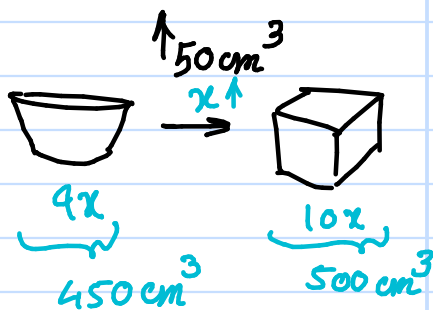 ↑50cm³
x↑
→
4x
10x
450cm³
500cm³